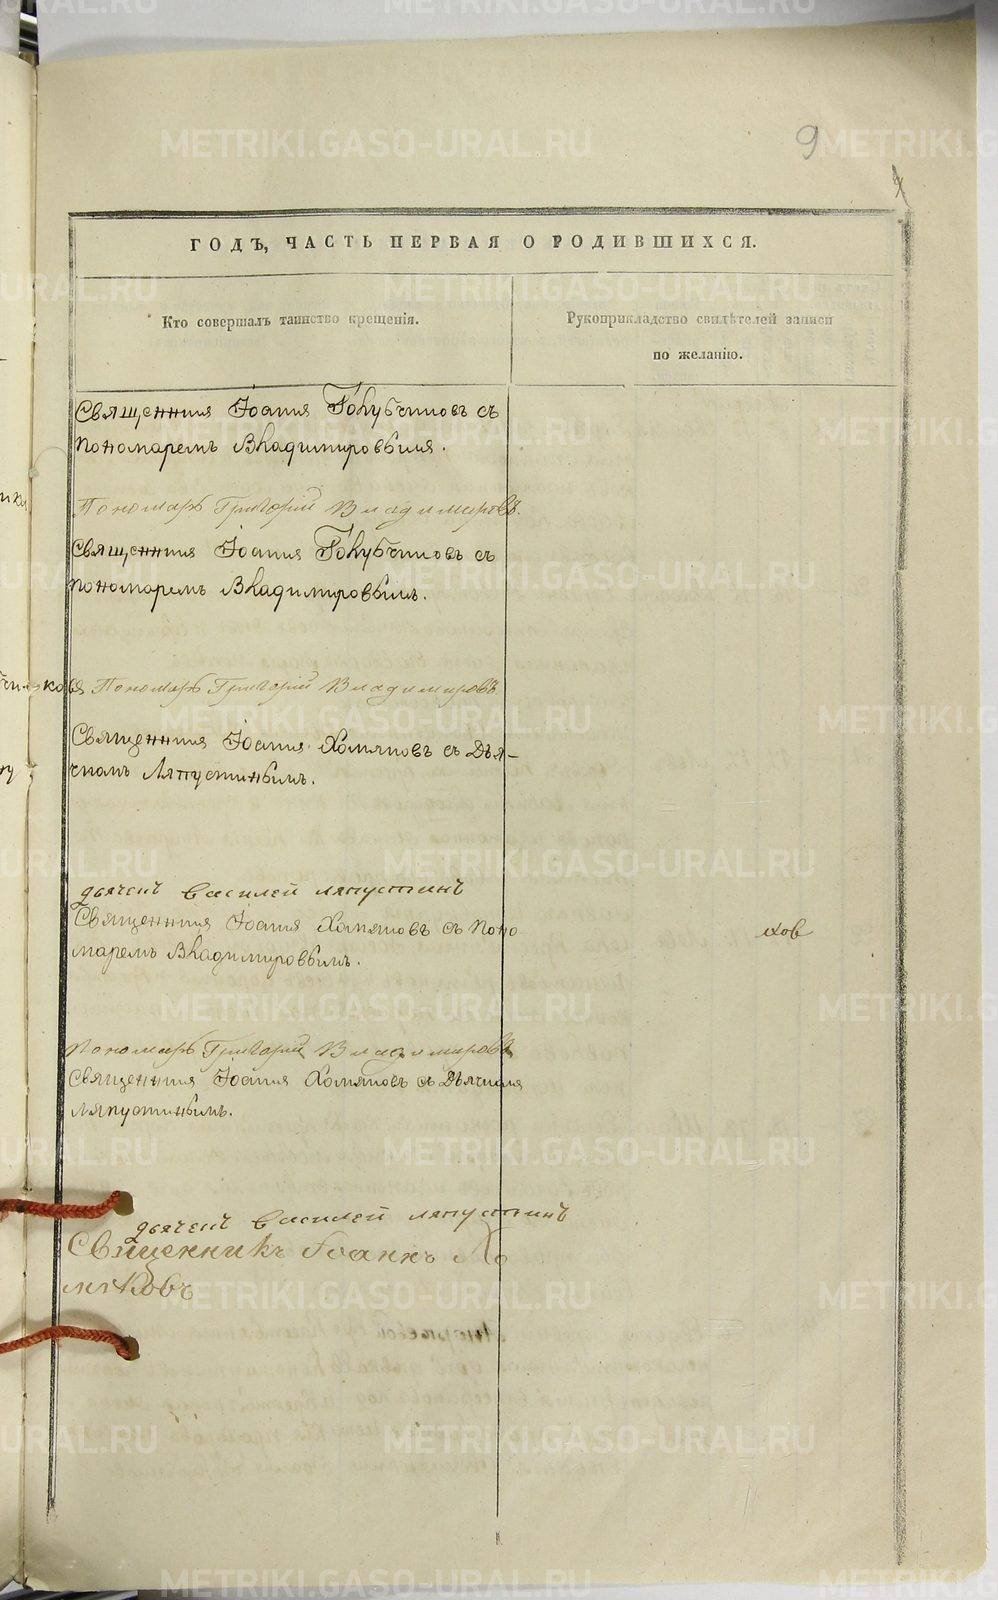 9
ГОДЪ, ЧАСТЬ ПЕРВАЯ О РОДИВШИХСЯ.
Кто совершалъ таинство крещенія.
Рукоприкладство свидѣтелей записи
по желанію.
Священникъ Іоаннъ Голубчиковъ съ
пономаремъ Владимировымъ.
Пономарь Григорій Владимировъ.
Священникъ Іоаннъ Голубчиковъ съ
пономаремъ Владимировымъ.
Пономарь Григорій Владимировъ
Священникъ Іоаннъ Хомяковъ съ Дья-
чкомъ Ляпустинымъ.
дьячекъ Василей ляпустинъ
Священникъ Іоаннъ Хомяковъ съ поно
маремъ Владимировымъ.
Пономарь Григорій Владимировъ
Священникъ Іоаннъ Хомяковъ съ Дьячкомъ
Ляпустинымъ.
дьячекъ Василей ляпустинъ
Священникъ Іоаннъ Хо
мяковъ
METRIKI.GASO-URAL.RU